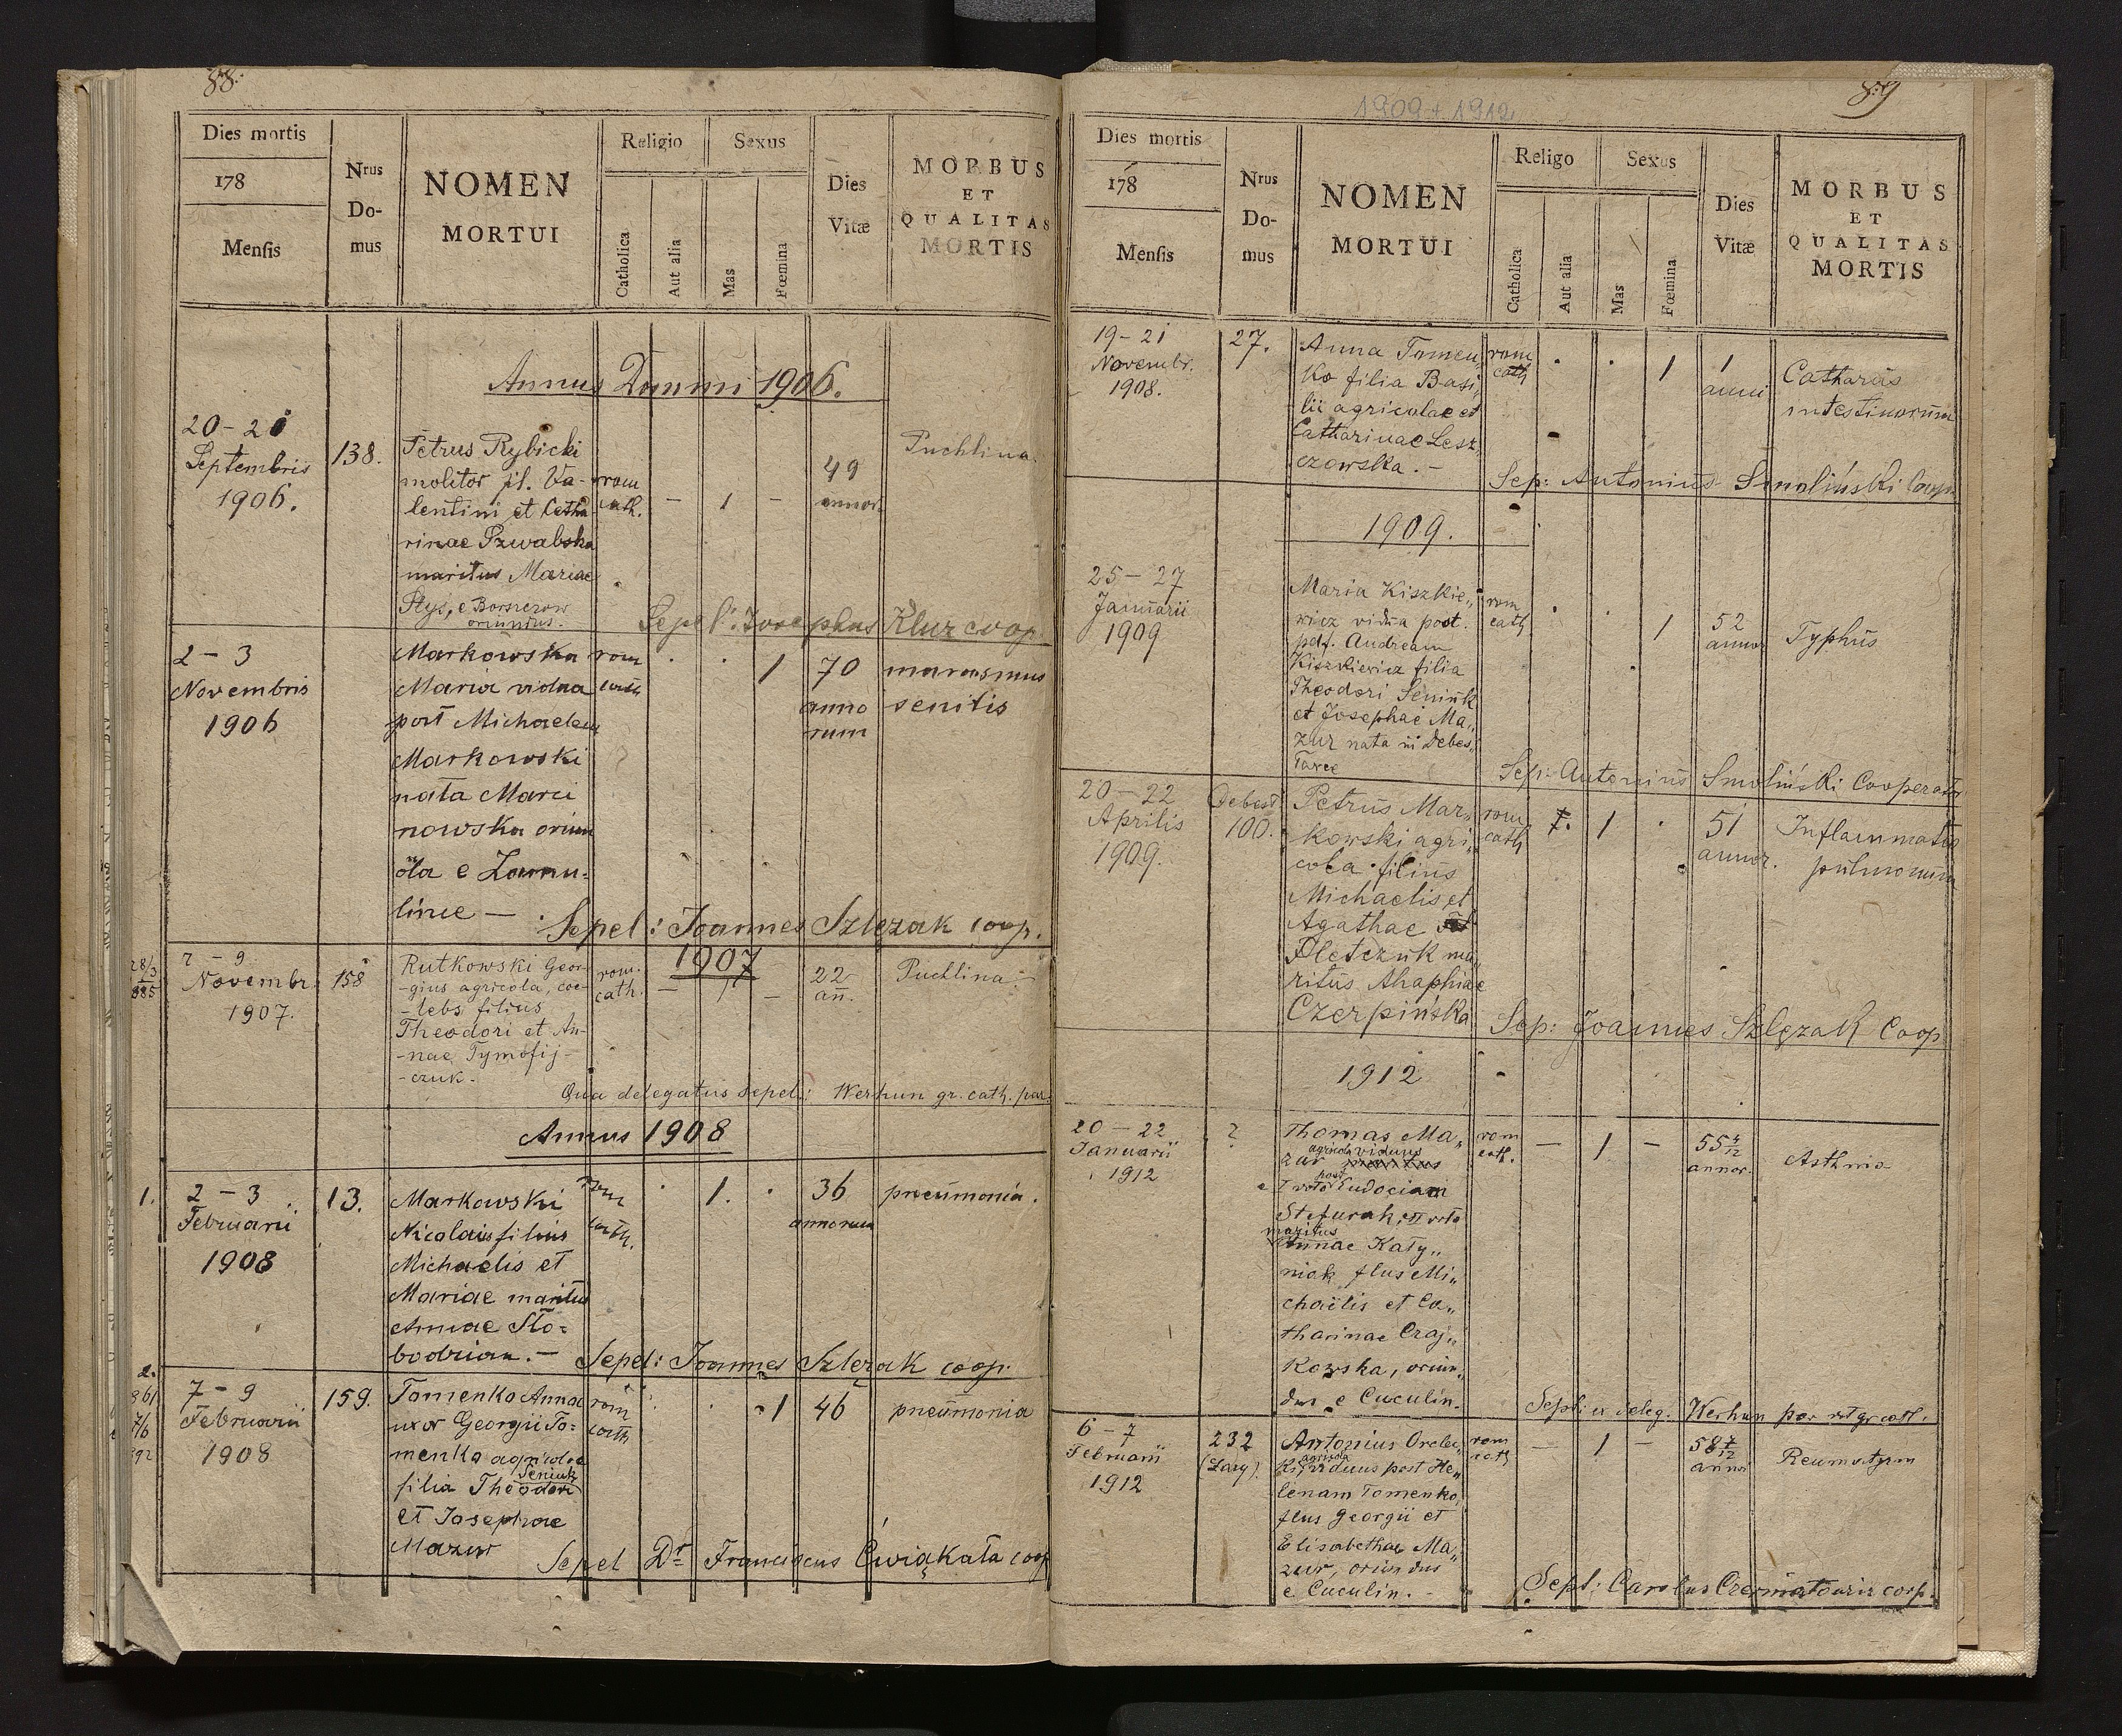 88.
Dies mortis
178
Mensis
Nrus
Do-
mus
NOMEN
MORTUI
Religio
Catholica
Aut alia
Sexus
Mas
Fœmina
Dies
Vitæ
MORBUS
ET
QUALITAS
MORTIS
Annus Domini 1906.
20-21
Septembris
1906.
138.
Petrus Rybicki
molitor fil. Va-
lentini et Catha
rinae Szwabska
maritus Mariae
Stys, e
oriundus.
rom
cath.
-
1
-
49
annor.
Puchlina.
Sepel: Josephus Kluz coop.
2-3
Novembris
1906
Markowska
Maria vidua
post Michaelem
Markowski
nata Marci
nowska oriun
da e Zamu-
lińce —
rom
cath
1
70
anno
rum
marasmus
senilis
Sepel: Joannes Szlęzak coop.
28/3
885
7-9
Novembr.
1907.
158
Rutkowski Geor-
-gius agricola, coe-
-lebs filius
Theodori et An-
-nae Tymofij-
-czuk.
rom.
cath.
1907
-
1
-
22
an̄.
Puchlina.
Qua delegatus sepel: Werhun gr. cath. par.
Annus 1908
1.
2-3
Februarii
1908
13.
Markowski
Nicolaus filius
Michaelis et
Mariae maritus
Annae Sło-
bodzian.-
rom
cath.
1.
36
annorum
pneumonia.
Sepel: Joannes Szlęzak coop.
2.
7-9
Februarii
1908
159.
Tomenko Anna
uxor Georgii To-
menko agricolae
Seniuk
filia Theodori
et Josephae
Mazur
rom
cath
1
46
pneumonia
Sepel Dr Franciscus Ćwiąkała coop
89
1909 + 1912
Dies mortis
178
Mensis
Nrus
Do-
mus
NOMEN
MORTUI
Religo
Catholica
Aut alia
Sexus
Mas
Fœmina
Dies
Vitæ
MORBUS
ET
QUALITAS
MORTIS
19-21
Novembr.
1908.
27.
Anna Tomen„
ko filia Basi„
lii agricolae et
Catharinae Lesz„
czowska.-
rom
cath
1
1
anni
Catharus
intestinorum
Sep: Antonius Smoliński Coop
1909.
25-27
Januarii
1909
Maria Kiszkie„
wicz vidua post.
pdf. Andream
Kiszkiewicz filia
Theodori Seniuk
et Josephae Ma„
zur nata in Debes„
ławce
rom
cath
1
52
annor
Typhus
Sep: Antonius Smoliński Cooperator
20-22
Aprilis
1909.
Debesł
100.
Petrus Mar„
kowski agri„
cola filius
Michaelis et
Agathae
Oletczuk ma„
ritus Ahaphiae
Czerpińska
rom
cath
1
51
annor.
Inflammatio
pulmonum
Sep: Joannes Szlęzak Coop
1912
20-22
Januarii
1912
?
Thomas Ma„
agricola viduus
zur
post
I voto Eudociam
Stefurak, II voto
maritus
Annae Katy„
niak flus Mi„
chaëlis et Ca„
tharinae Craj„
kowska, oriun„
dus e Cuculin.
rom
cath.
-
1
-
55 4/12
annor.
Asthma
Sepl: ex deleg. Werhun par rit gr cath.
6-7
Februarii
1912
232
(Łazy).
Antonius Orele„
agricola
ki, viduus post He„
lenam Tomenko,
flus Georgii et
Elisabethae Ma„
zur, oriundus
e Cuculin.-
rom
cath
-
1
-
58 7/12
annor
Reumatysm
Sepl: Carolus coop.